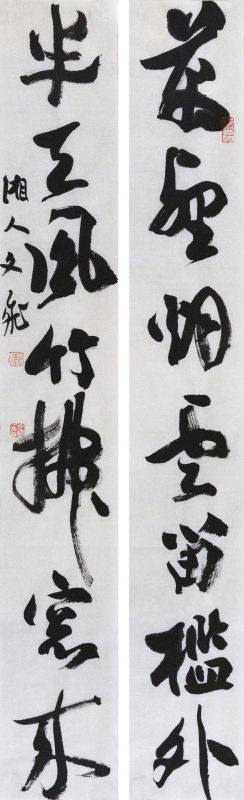 萬壑烟雲留檻外
半天風竹拂窗來
湘人文飛